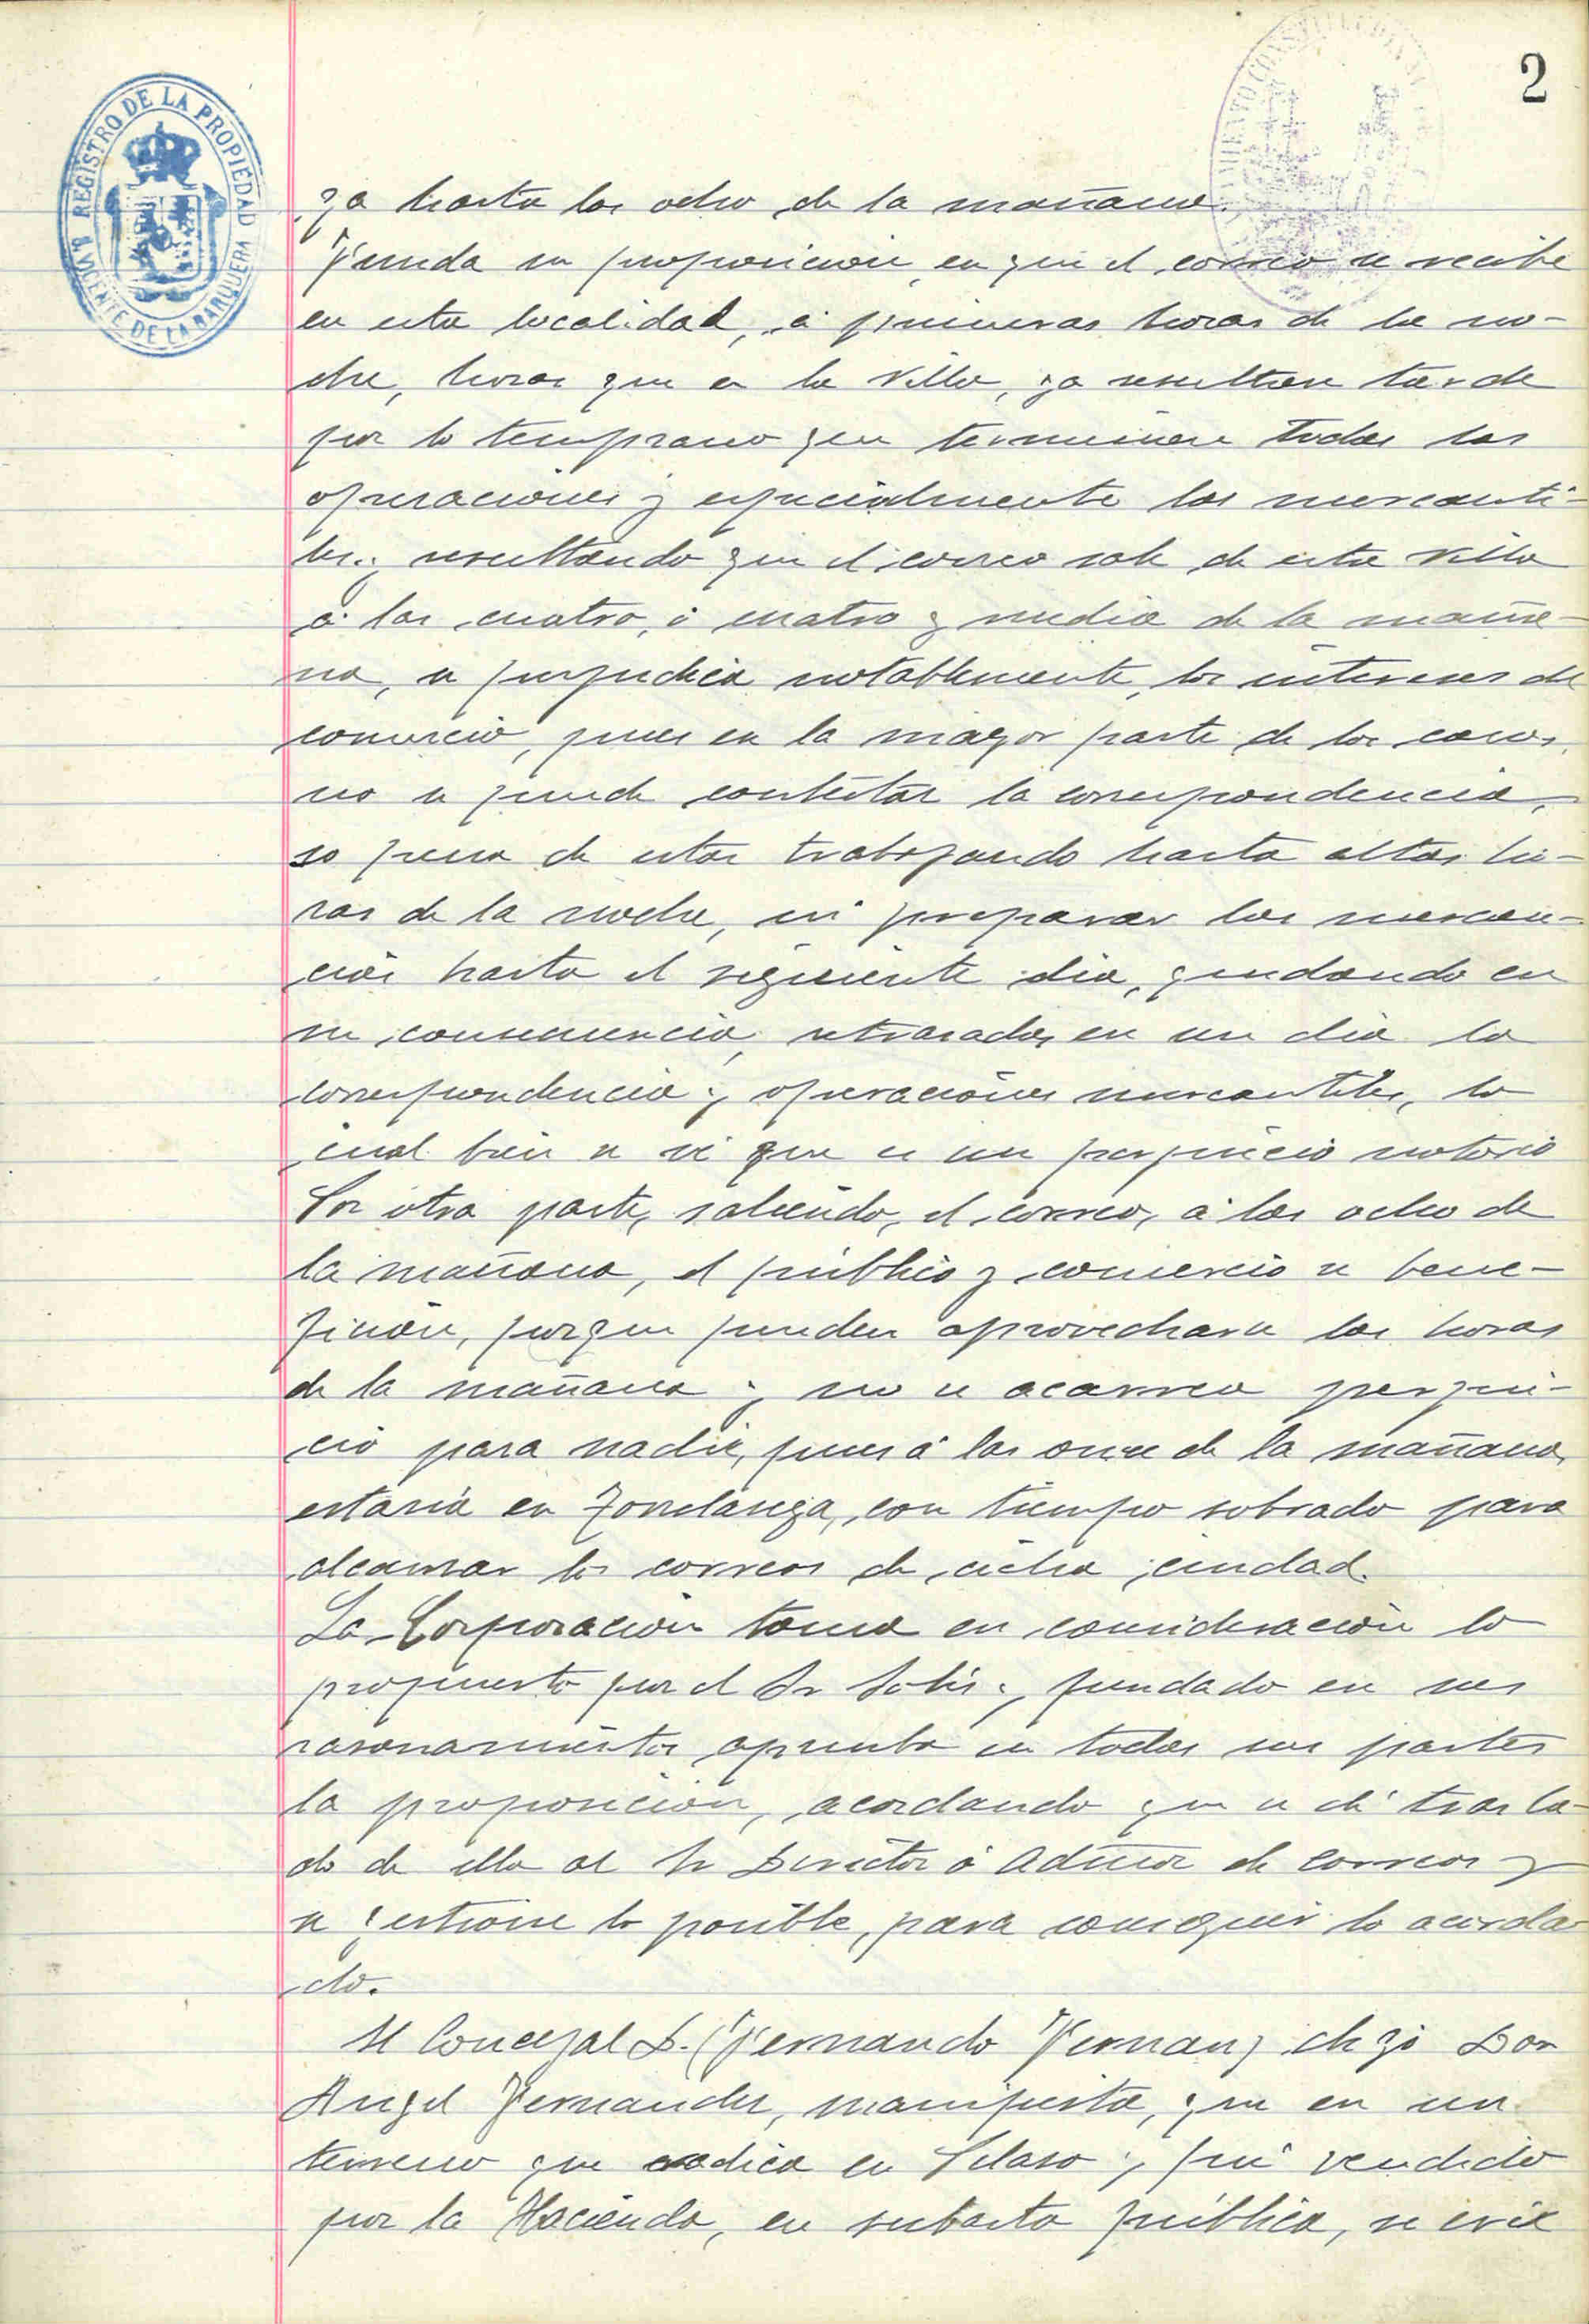 2
REGISTRO DE LA PROPIEDAD
S. VICENTE DE LA BARQUERA
ga hasta las ocho de la mañana.
Funda su proposicion en que el correo se recibe
en esta localidad, á primeras horas de la no-
che, horas que en la Villa, ya resultan tarde
por lo temprano que terminan todas las
operaciones y especialmente las mercanti-
les y resultando que el correo sale de esta Villa
á las cuatro, ó cuatro y media de la maña-
na, se perjudica notablemente, los intereses del
comercio, pues en la mayor parte de los casos,
no se puede contestar la correspondencia,
so pena de estar trabajando hasta altas ho-
ras de la noche, ni preparar las mercan-
cias hasta el siguiente dia, quedando en
su consecuencia, retrasadas en un dia la
correspondencia y operaciones mercantiles, lo
cual bien se vé que es un perjuicio notorio
Por otra parte, saliendo, el correo, á las ocho de
la mañana, el publico y comercio se bene-
fician, porque pueden aprovecharse las horas
de la mañana y no se acarrea perjui-
cio para nadie, pues á las once de la mañana,
estaria en Torrelavega, con tiempo sobrado para
alcanzar los correos de dicha ciudad.
La Corporacion toma en consideracion lo
propuesto por el Sr Solis y fundado en sus
rasonamientos aprueba en todas sus partes
la proposicion, acordando que se dé trasla-
do de ella al Sr Director ó Admor de correos y
se gestione lo posible, para conseguir lo acorda-
do.
El Concejal D. (Fernando Fernan) digo Don
Angel Fernandez, manifiesta, que en un
terreno que radica en Pelaso y fué vendido
por la Hacienda, en subasta pública, se está